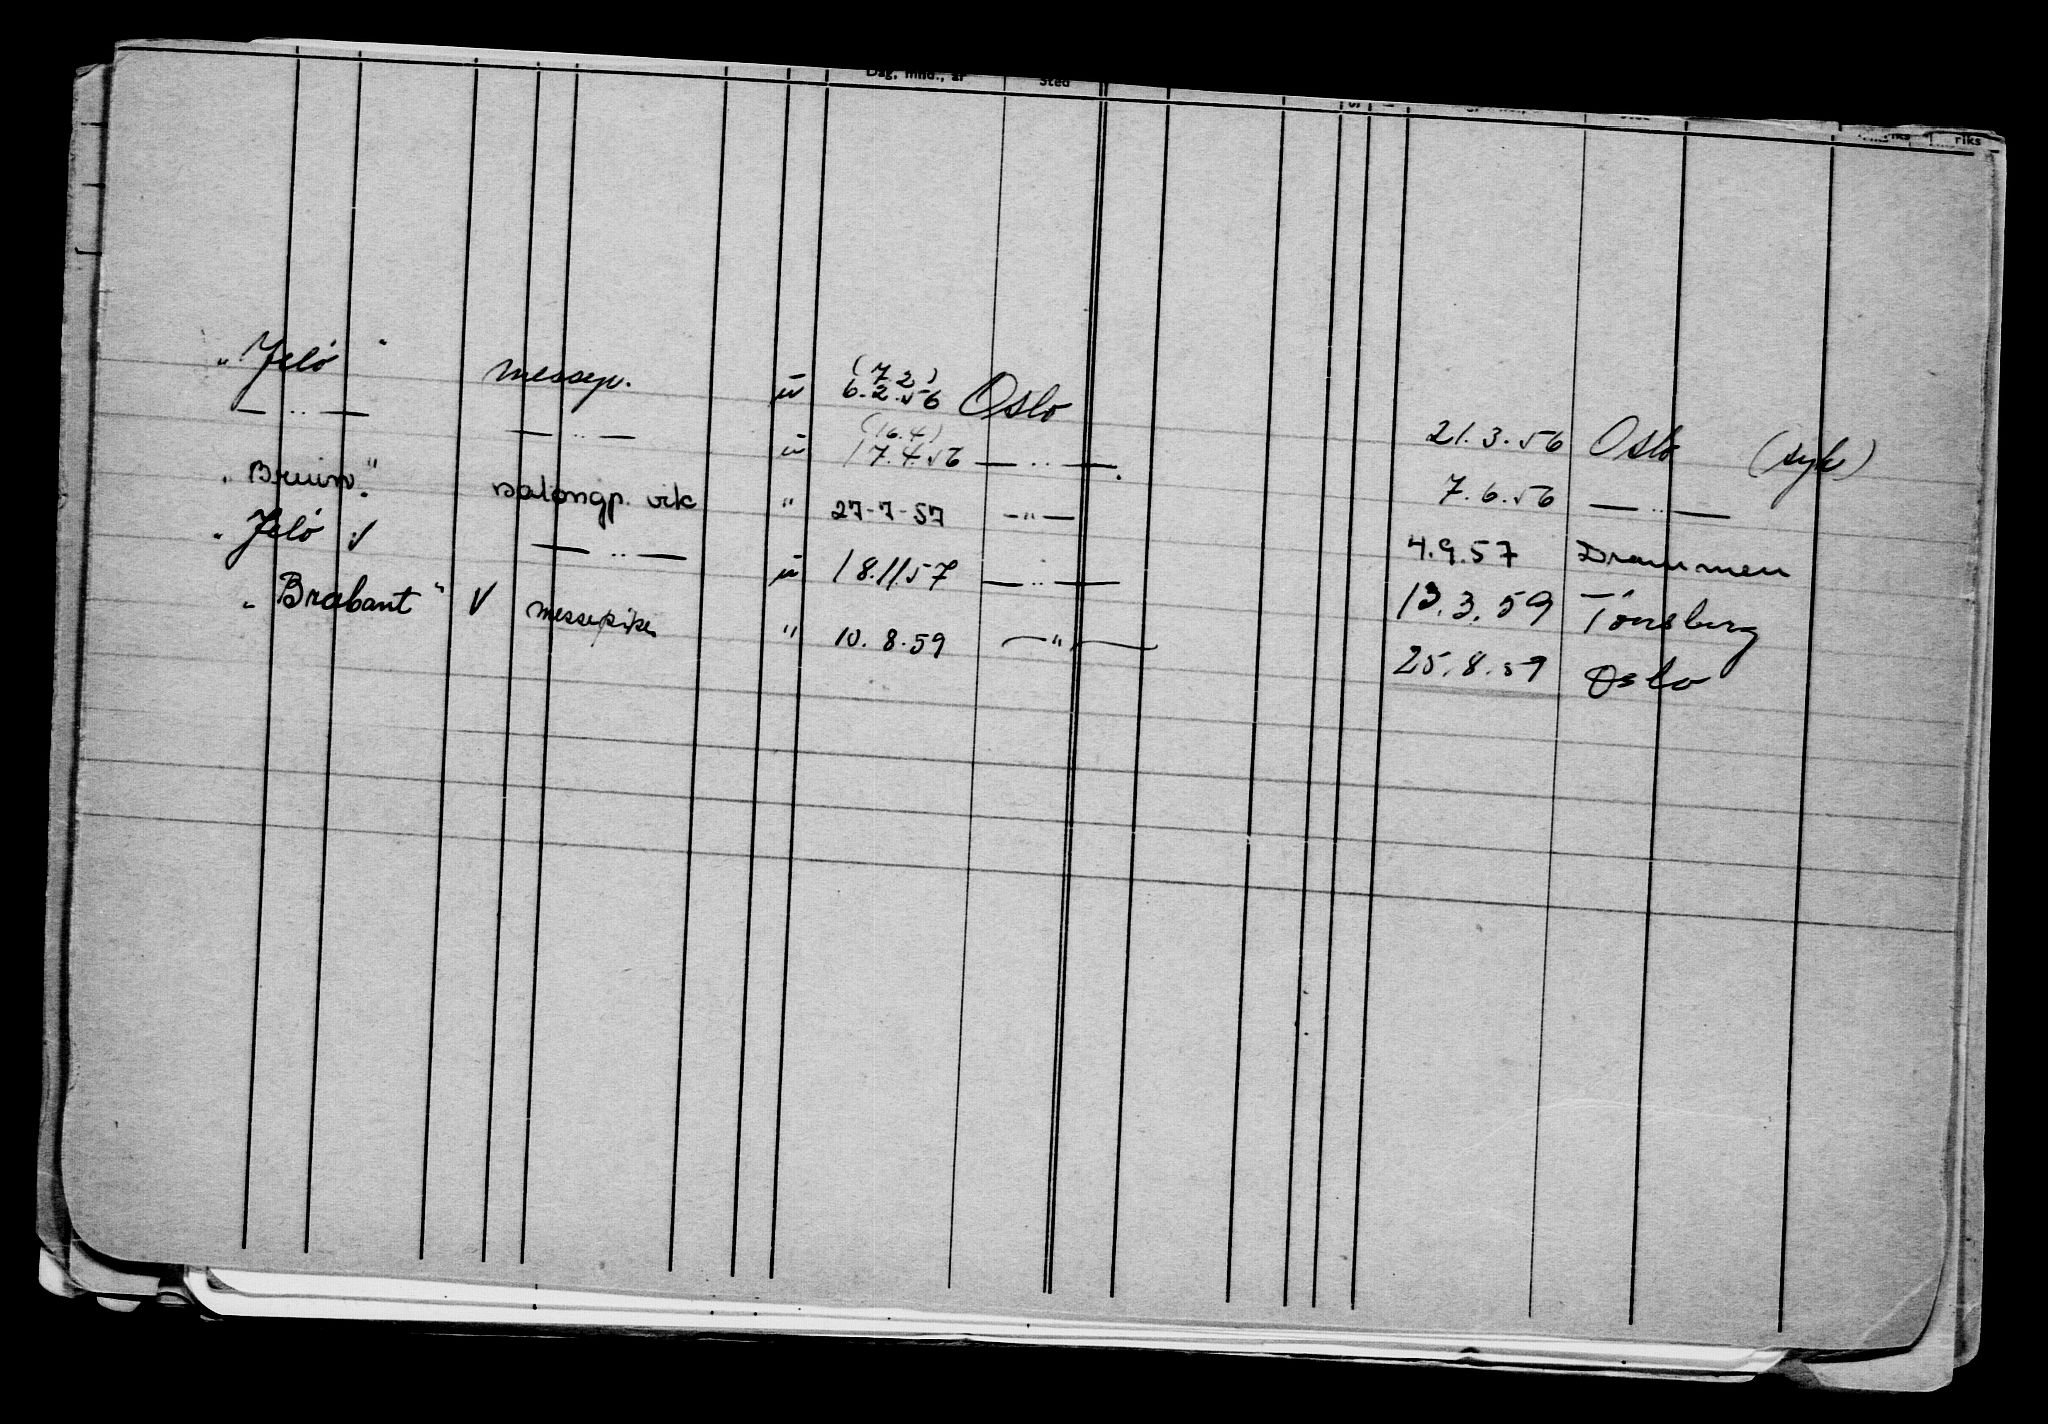 Dag, mnd., år Sted riks riks
„Jelø" messep. (7.2) 6.2.56 Oslo 21.3.56 Oslo (syk)
— " — — " — (16.4) 17.4.56 — " —. 7.6.56 — " —
„Bruin." salongp. vik " 27-7-57 — " — 4.9.57 Drammen
„Jelø √ — " — 18.11.57 — " — 13.3.59 Tønsberg
„Brabant" √ messepike " 10.8.59 — " — 25.8.59 Oslo